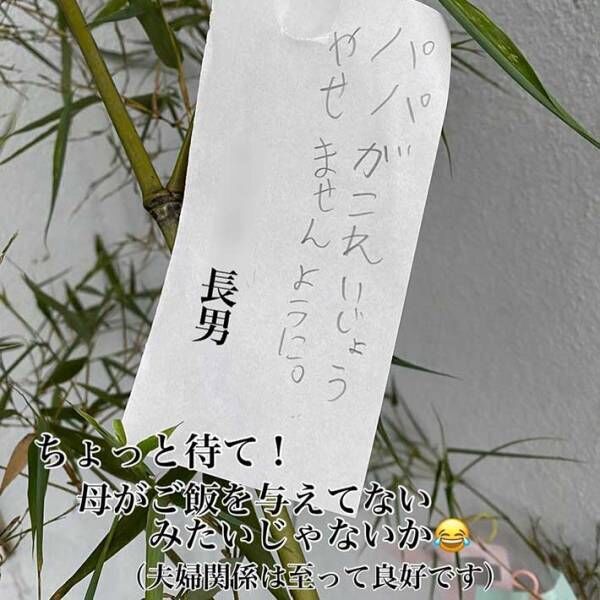 パパがこれいじょう
やせませんように。
長男
ちょっと待て！
母がご飯を与えてない
みたいじゃないか😂
（夫婦関係は至って良好です）